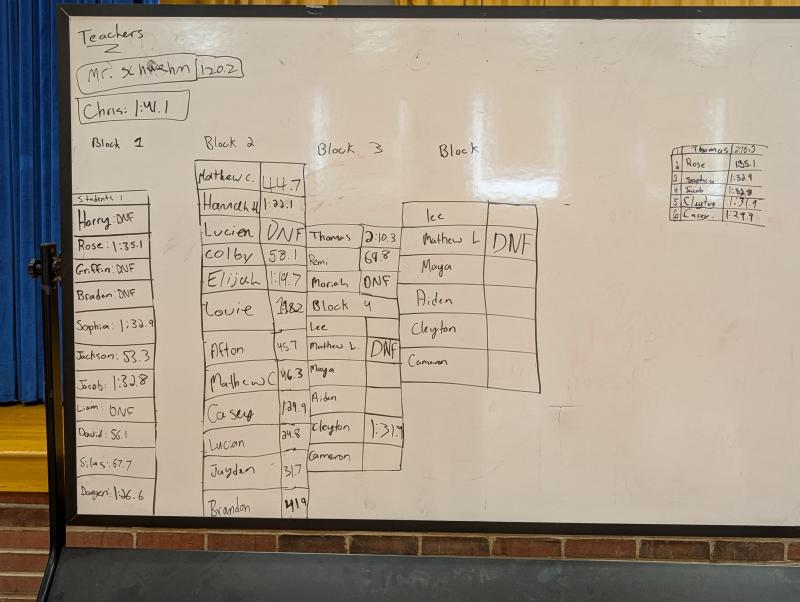 Teachers
Mr. Schwehm 120.2
Chris: 1:41.1
Block 1
Students 1
Harry: DNF
Rose: 1:35.1
Griffin: DNF
Braden: DNF
Sophia: 1:32.9
Jackson: 53.3
Jacob: 1:32.8
Liam: DNF
David: 56.1
Silas: 67.7
Daegen: 1:26.6
Block 2
Mathew C. 44.7
Hannah H 1:22.1
Lucien DNF
Colby 58.1
Elijah 1:19.7
Louie
Afton 45.7
Mathew C 46.3
Casey 1:29.9
Lucian 24.8
Jayden 31.7
Brandon 41.9
Block 3
Thomas 2:10.3
Remi 69.8
Moriah DNF
Block 4
Lee
Mathew L. DNF
Maya
Aiden
Cleyton 1:31.9
Cameron
Block
lee
Mathew L DNF
Maya
Aiden
Cleyton
Cameron
1 Thomas 210.3
2 Rose 135.1
3 Sophia 1:32.9
4 Jacob 1:32.8
5 Cleyton 1:31.9
6 Casey 1:29.9